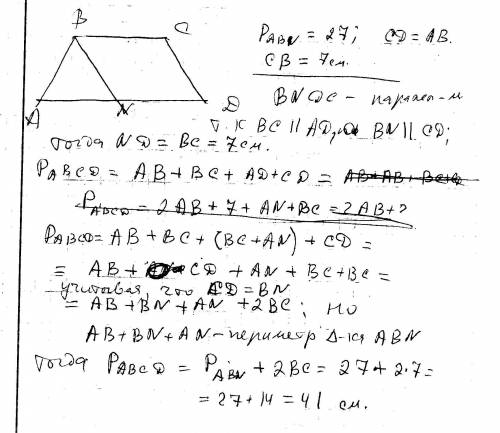 B C
A N D
P_ABN = 27; CD = AB.
CB = 7 см.
BNDC – паралл-м
т.к BC || AD, BN || CD;
тогда ND = BC = 7 см.
P_ABCD = AB + BC + AD + CD =
P_ABCD = 2AB + 7 + AN + BC = 2AB + ?
P_ABCD = AB + BC + (BC + AN) + CD =
= AB + CD + AN + BC + BC =
учитывая, что CD = BN
= AB + BN + AN + 2BC; но
AB + BN + AN – периметр Δ-ка ABN
тогда P_ABCD = P_ABN + 2BC = 27 + 2·7 =
= 27 + 14 = 41 см.